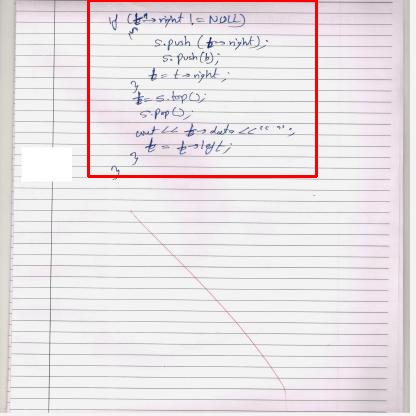 if (t->right != NULL)
{
s.push (t->right);
s.push(t);
t = t->right;
}
t = s.top();
s.pop();
cout << t->data << " ";
t = t->left;
}
}